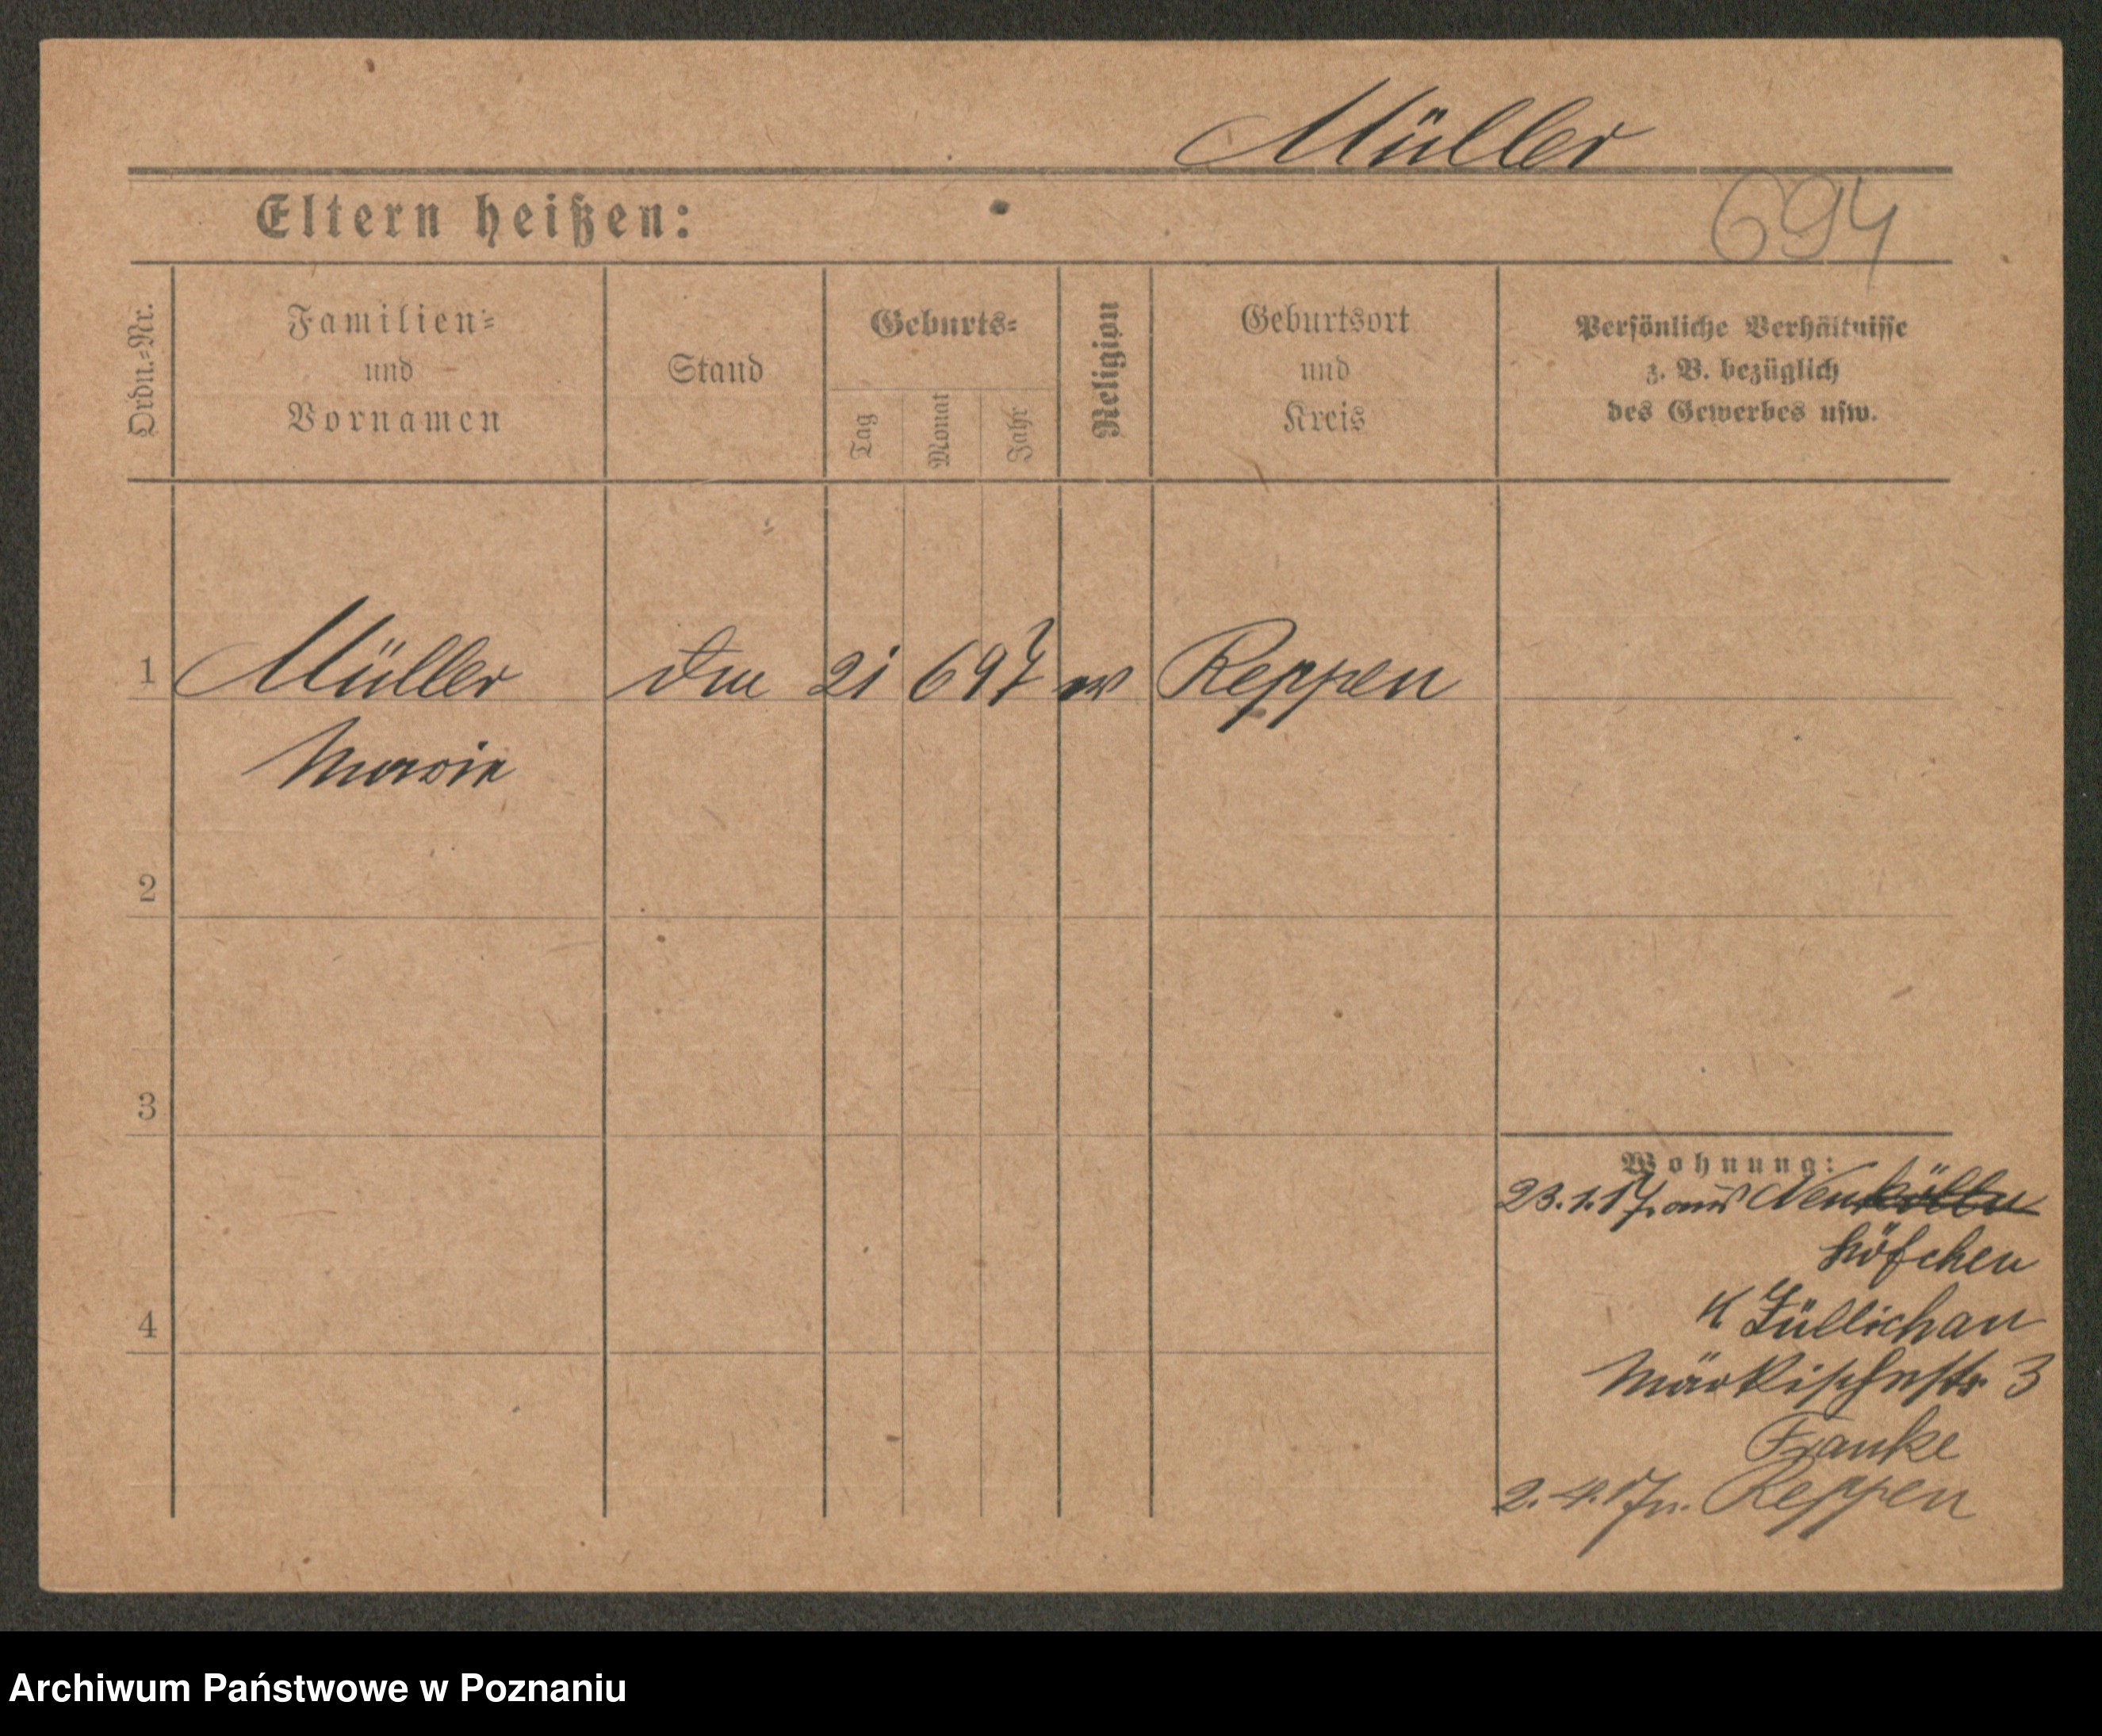 Müller
Eltern heißen:
694
Ordn.-Nr.
Familien-
und
Vornamen
Stand
Geburts-
Tag
Monat
Jahr
Religion
Geburtsort
und
Kreis
Persönliche Verhältnisse
z. B. bezüglich
des Gewerbes usw.
1 Müller 21 6 97 Reppen
Marie
2
3
4
Wohnung:
23.1.17. aus Neukölln
höfchen
K Züllichau
Märkischestr 3
Franke
2.4.17 n. Reppen
Archiwum Państwowe w Poznaniu